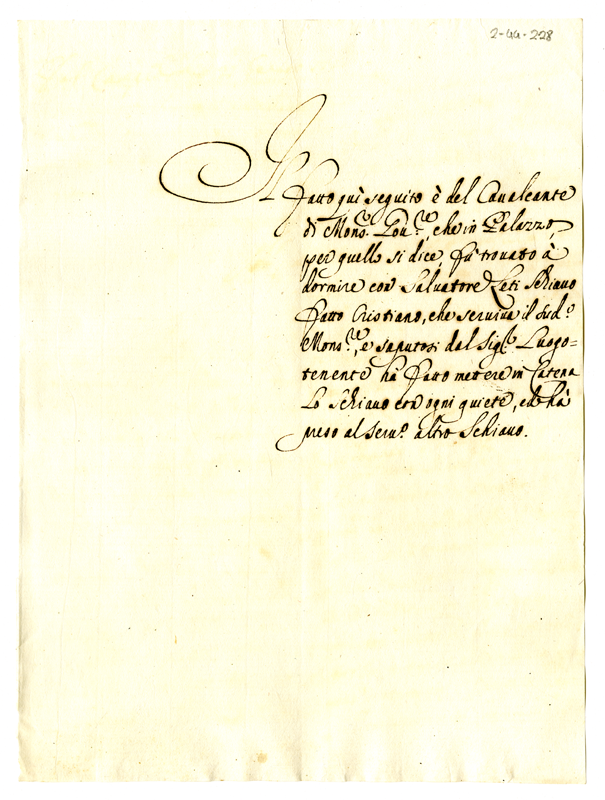 2-44-228
Il fatto quì seguito è del Caualcante
di Mons.re Gou.re, che in Palazzo,
per quello si dice, fu' trouato à
dormire con Saluatore Leti Schiauo
fatto Cristiano, che seruiua il sud.o
Mons.re, e saputosi dal Sig.re Luogo=
tenente hà fatto mettere in Catena
Lo Schiauo con ogni quiete, ed hà
preso al seru.o altro Schiauo.